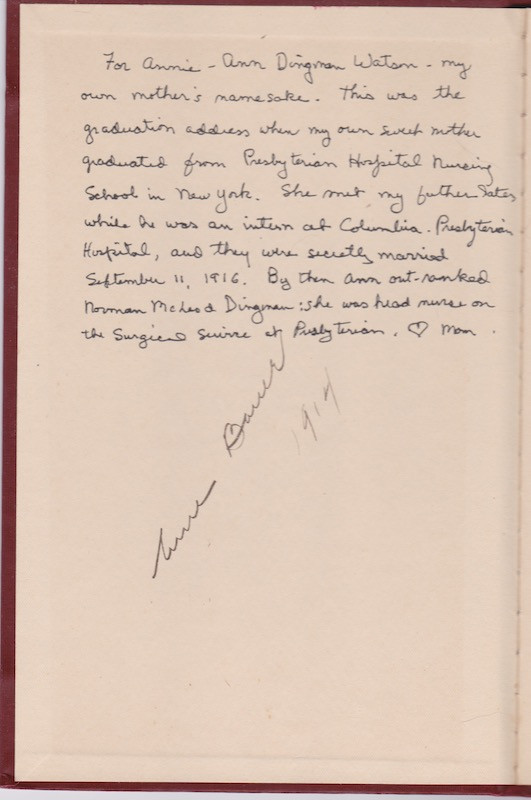 For Annie - Ann Dingman Watson - my
own mother's namesake. This was the
graduation address when my own sweet mother
graduated from Presbyterian Hospital Nursing
School in New York. She met my father
while he was an intern at Columbia-Presbyterian
Hospital, and they were secretly married
September 11, 1916. By then Ann out-ranked
Norman McLeod Dingman: she was head nurse on
the Surgical at Presbyterian. ♡ Mom.
1914